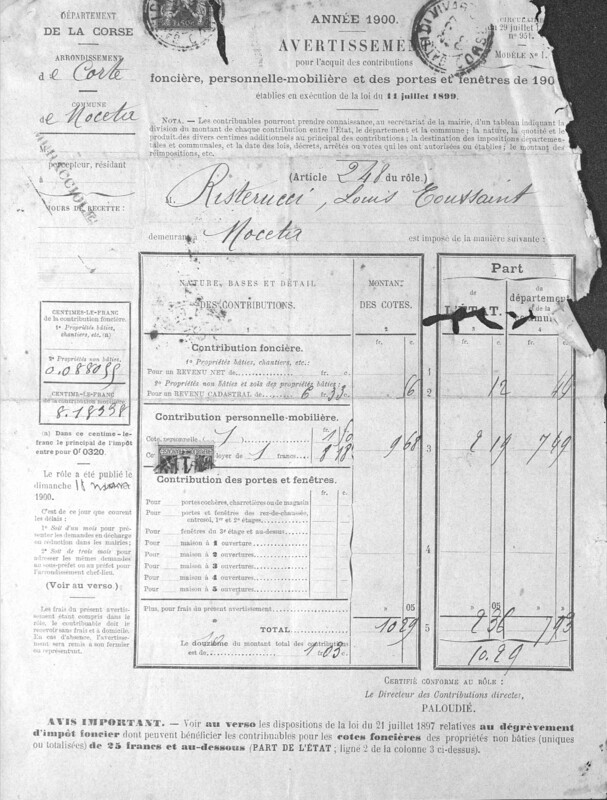 DÉPARTEMENT
DE LA CORSE
ARRONDISSEMENT
de Corte
COMMUNE
de Noceta
percepteur, résidant
à
JOURS DE RECETTE:
CENTIMES-LE-FRANC
de la contribution foncière.
1° Propriétés bâties,
chantiers, etc. (a)
2° Propriétés non bâties.
CENTIME-LE-FRANC
de la contribution mobilière
8.18
(a) Dans ce centime-le-
franc le principal de l'impôt
entre pour 0f 0320.
Le rôle a été publié le
dimanche 11 mars
1900.
C'est de ce jour que courent
les délais :
1° Soit d'un mois pour pré-
senter les demandes en décharge
ou réduction dans les mairies ;
2° Soit de trois mois pour
adresser les mêmes demandes
au sous-préfet ou au préfet pour
l'arrondissement chef-lieu.
(Voir au verso)
Les frais du présent avertis-
sement étant compris dans le
rôle, le contribuable doit le
recevoir sans frais et à domicile.
En cas d'absence, l'avertisse-
ment sera remis à son fermier
ou représentant.
ANNÉE 1900.
CIRCULAIRE
du 29 juillet
n° 951.
MODÈLE N° 1.
AVERTISSEMEN
pour l'acquit des contributions
foncière, personnelle-mobilière et des portes et fenêtres de 190
établies en exécution de la loi du 11 juillet 1899.
NOTA. — Les contribuables pourront prendre connaissance, au secrétariat de la mairie, d'un tableau indiquant la
division du montant de chaque contribution entre l'État, le département et la commune ; la nature, la quotité et le
produit des divers centimes additionnels au principal des contributions ; la destination des impositions départe-
mentales et communales, et la date des lois, décrets, arrêtés ou votes qui les ont autorisées ou établies ; le montant des
réimpositions, etc.
(Article 248 du rôle.)
M Risterucci, Louis Toussaint
demeurant à Noceta est imposé de la manière suivante :
NATURE, BASES ET DÉTAIL
DES CONTRIBUTIONS.
1
MONTANT
DES COTES.
2
Part
de
L'ÉTAT.
3
du
département
et de la
commune
4
Contribution foncière.
1° Propriétés bâties, chantiers, etc.:
Pour un REVENU NET de fr. c. 1
2° Propriétés non bâties et sols des propriétés bâties :
Pour un REVENU CADASTRAL de 6 33 56 2 12 44
Contribution personnelle-mobilière.
Cote personnelle (1) 1 50
loyer de 1 francs 8 18 9 68 3 2 19 7 49
Contribution des portes et fenêtres.
Pour portes cochères, charretières ou de magasin
Pour portes et fenêtres des rez-de-chaussée,
entresol, 1er et 2e étages
Pour fenêtres du 3e étage et au-dessus
Pour maison à 1 ouverture
Pour maison à 2 ouvertures
Pour maison à 3 ouvertures
Pour maison à 4 ouvertures
Pour maison à 5 ouvertures
4
Plus, pour frais du présent avertissement » 05 » 05
TOTAL 10 29 5 2 36 7 93
10.29
Le douzième du montant total des contributions
est de 1 fr. 03 c.
CERTIFIÉ CONFORME AU RÔLE :
Le Directeur des Contributions directes,
PALOUDIÉ.
AVIS IMPORTANT. — Voir au verso les dispositions de la loi du 21 juillet 1897 relatives au dégrèvement
d'impôt foncier dont peuvent bénéficier les contribuables pour les cotes foncières des propriétés non bâties (uniques
ou totalisées) de 25 francs et au-dessous (PART DE L'ÉTAT ; ligne 2 de la colonne 3 ci-dessus).